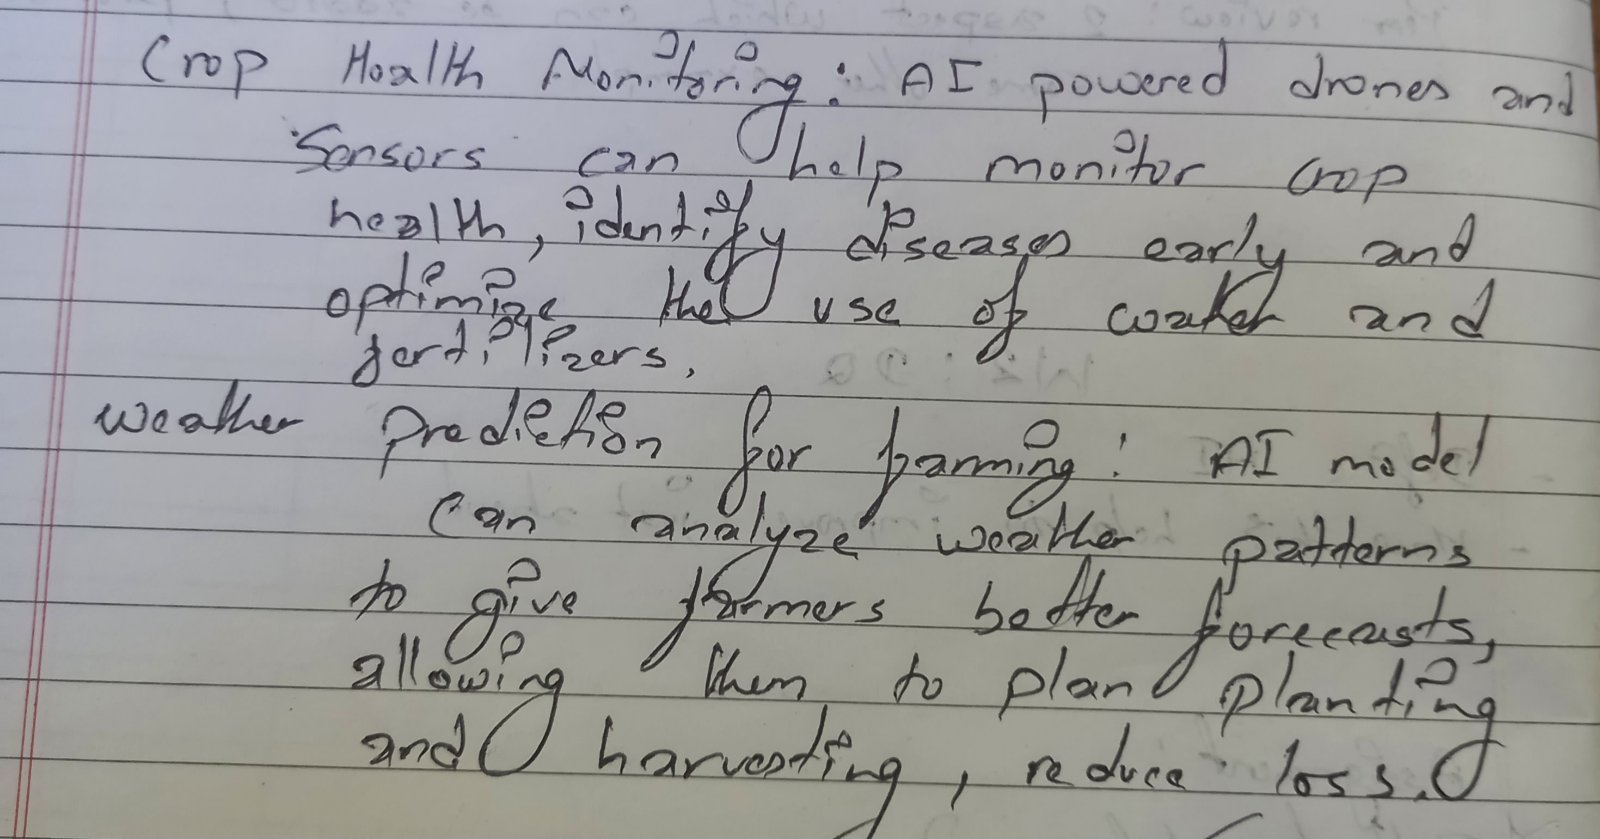 Crop Health Monitoring: AI powered drones and
Sensors can help monitor crop
health, identify diseases early and
optimize the use of water and
fertilizers.
Weather Prediction for farming: AI model
can analyze weather patterns
to give farmers better forecasts,
allowing them to plan planting
and harvesting, reduce loss.